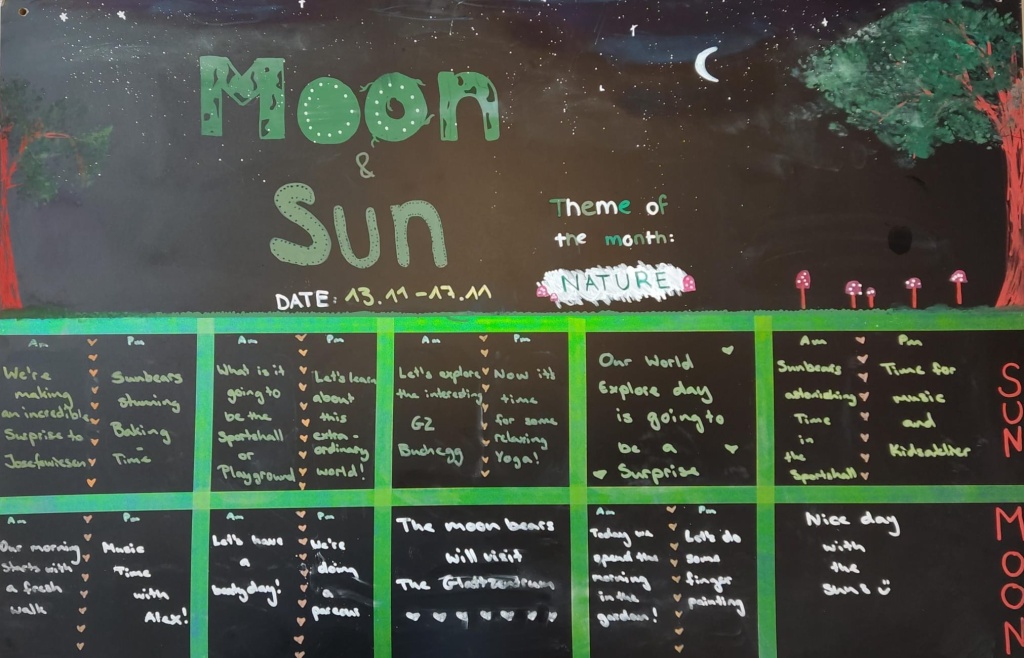 Moon
&
Sun
Theme of
the month:
NATURE
DATE: 13.11-17.11
Am
We're
making
an incredible
Surprise to
Josefswiesen
Pm
Sunbears
stunning
Baking
Time
Am
What is it
going to
be the
Sportshall
or
Playground
Pm
Let's learn
about
this
extra-
ordinary
world!
Am
Let's explore
the interesting
GZ
Buchegg
Pm
Now it's
time
for some
relaxing
Yoga!
Our World
Explore day
is going to
be a
Surprise
Am
Sunbears
astonishing
Time
in
the
Sportshall
Pm
Time for
music
and
Kidsatelier
SUN
Am
Our morning
starts with
a fresh
walk
Pm
Music
Time
with
Alex!
Am
Let's have
a
babyday!
Pm
We're
doing
a
The moon bears
will visit
The
Am
Today we
spend the
morning
in the
garden!
Pm
Let's do
some
finger
painting
Nice day
with
the
Sun's
MOON